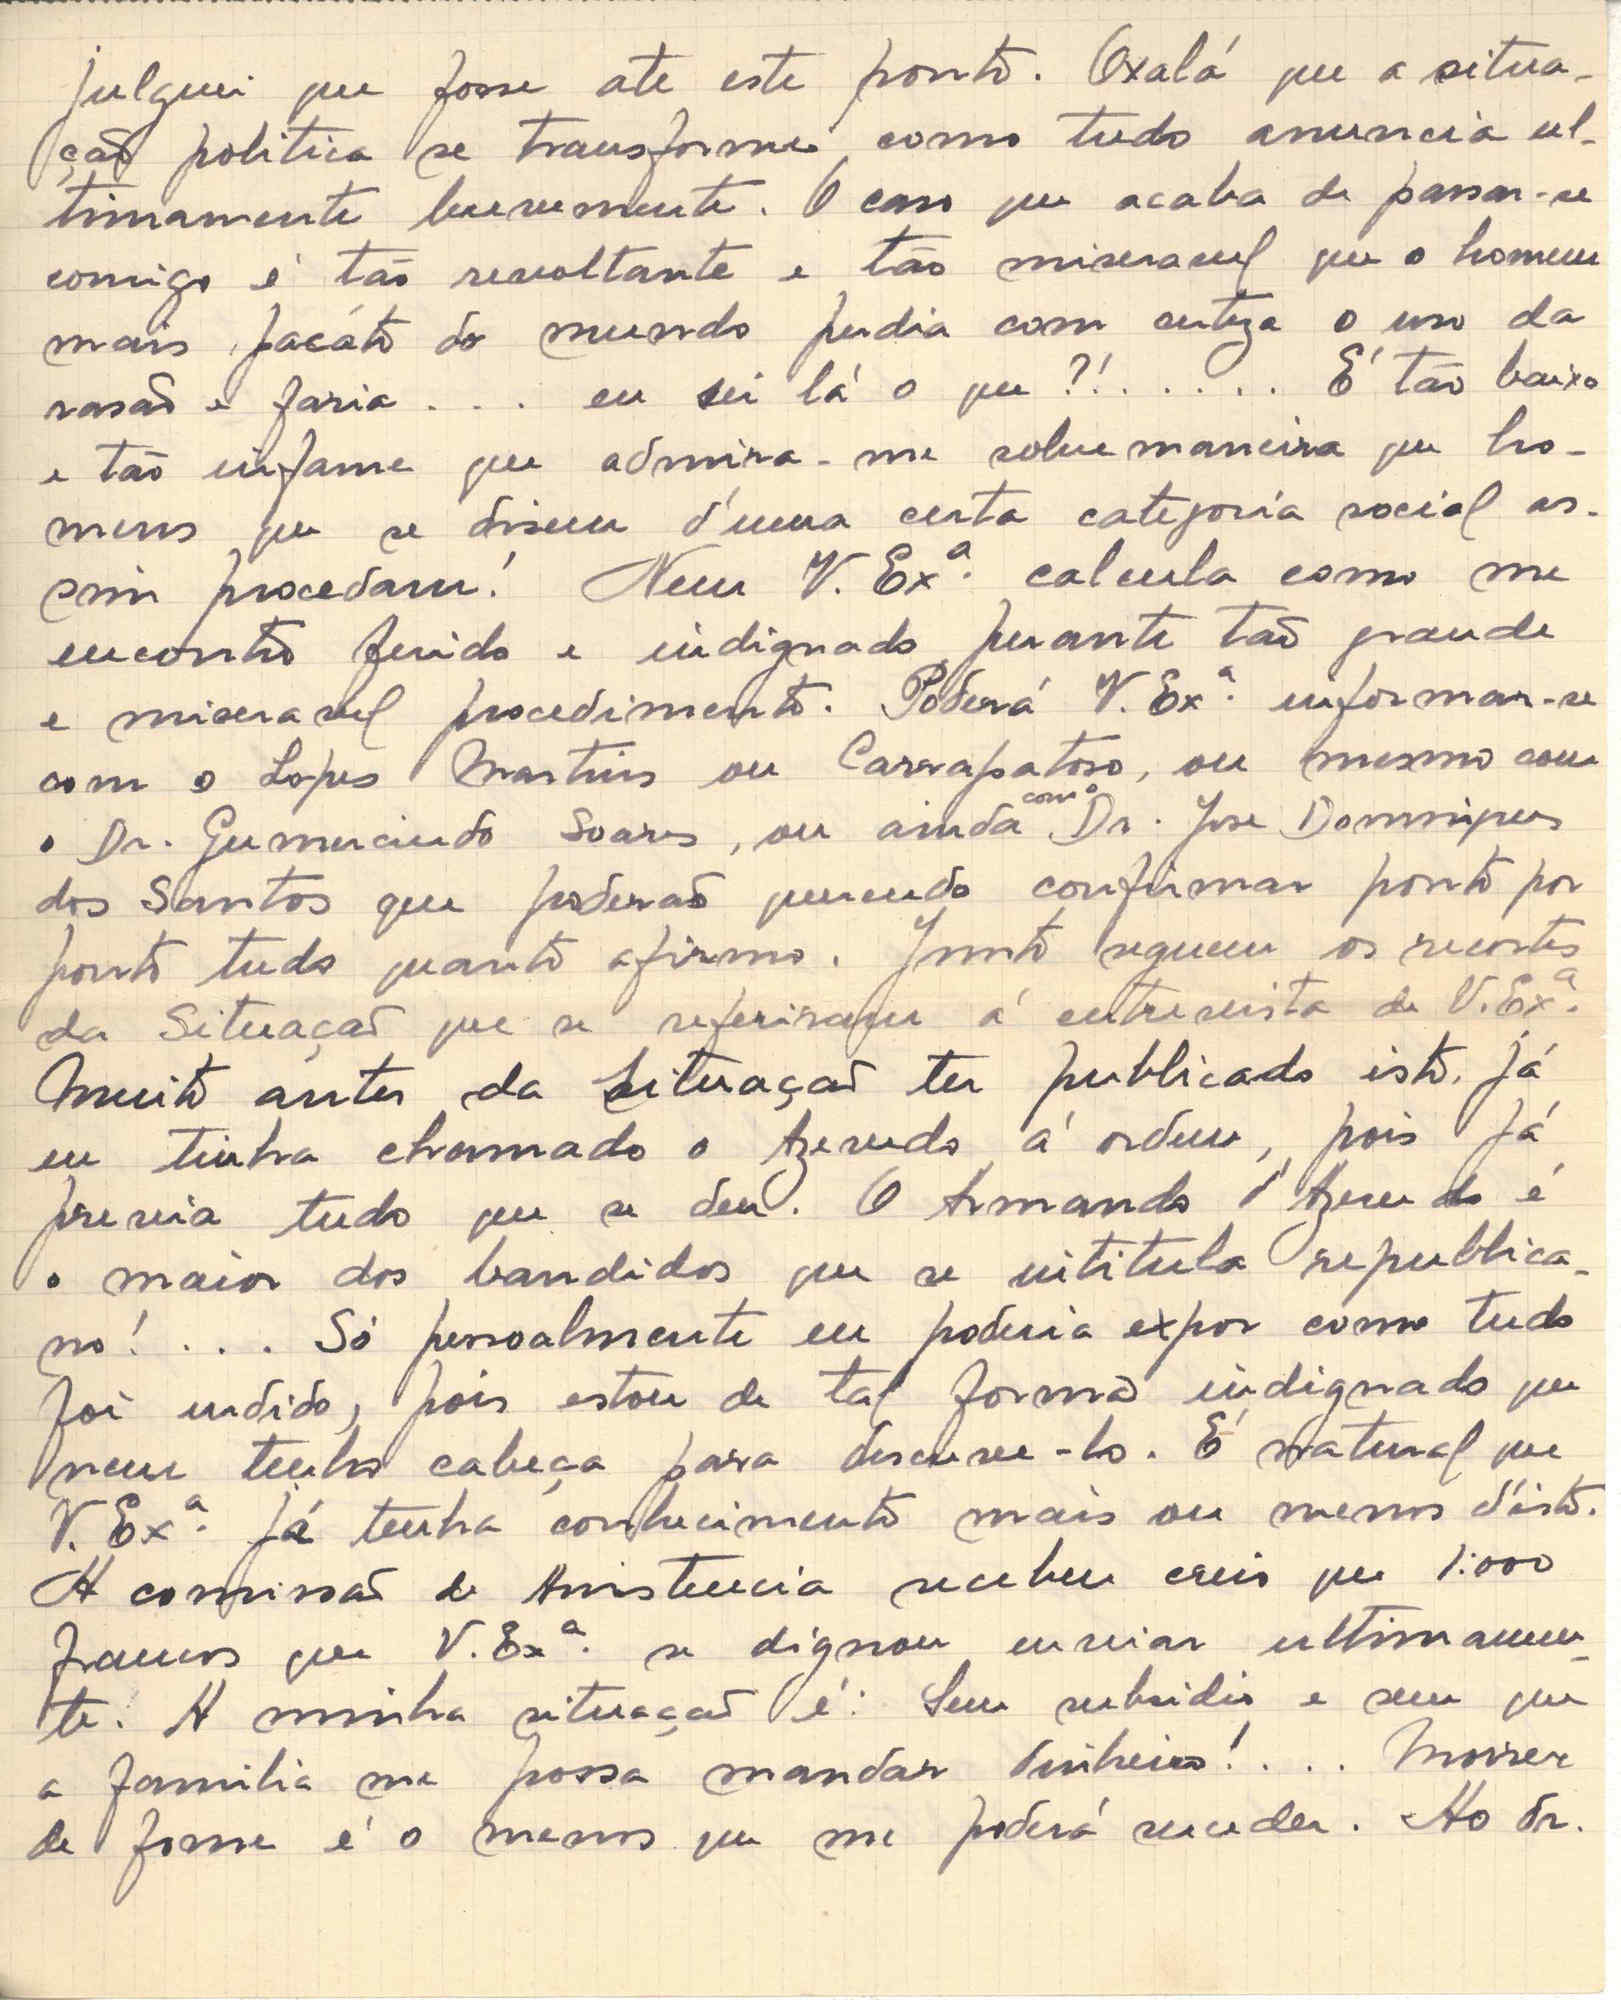 julguei que fosse ate este ponto. Oxalá que a situa-
ção politica se transforme, como tudo anuncia ul-
timamente brevemente. O caso que acaba de passar-se
comigo é tão revoltante e tão miseravel que o homem
mais pacáto do mundo perdia com certeza o uso da
rasão e faria . . . eu sei lá o que?!. . . . . . É tão baixo
e tão infame que admira-me sobremaneira que ho-
mens que se disem d'uma certa categoria social as-
sim procedam! Nem V. Exª. calcula como me
encontro ferido e indignado perante tão grande
e miseravel procedimento. Poderá V. Exª. informar-se
com o Lopes Martins ou Carrapatoso, ou mesmo com
o Dr. Gumercindo Soares, ou ainda com o Dr. Jose Domingues
dos Santos que poderão querendo confirmar ponto por
ponto tudo quanto afirmo. Junto seguem os recortes
da Situação que se referiram á entrevista de V. Exª.
Muito antes da Situação ter publicado isto, já
eu tinha chamado o Azevedo á ordem, pois já
previa tudo que se deu. O Armando d'Azevedo é
o maior dos bandidos que se intitula republica-
no!. . . . Só pessoalmente eu poderia expor como tudo
foi urdido, pois estou de tal forma indignado que
nem tenho cabeça para descreve-lo. É natural que
V. Exª. já tenha conhecimento mais ou menos d'isto.
A comissão de Assistencia recebeu creio que 1:000
francos que V. Exª. se dignou enviar ultimamen-
te. A minha situação é: Sem subsidio e sem que
a familia me possa mandar dinheiro!. . . . Morrer
de fome é o menos que me poderá suceder. Ao dr.